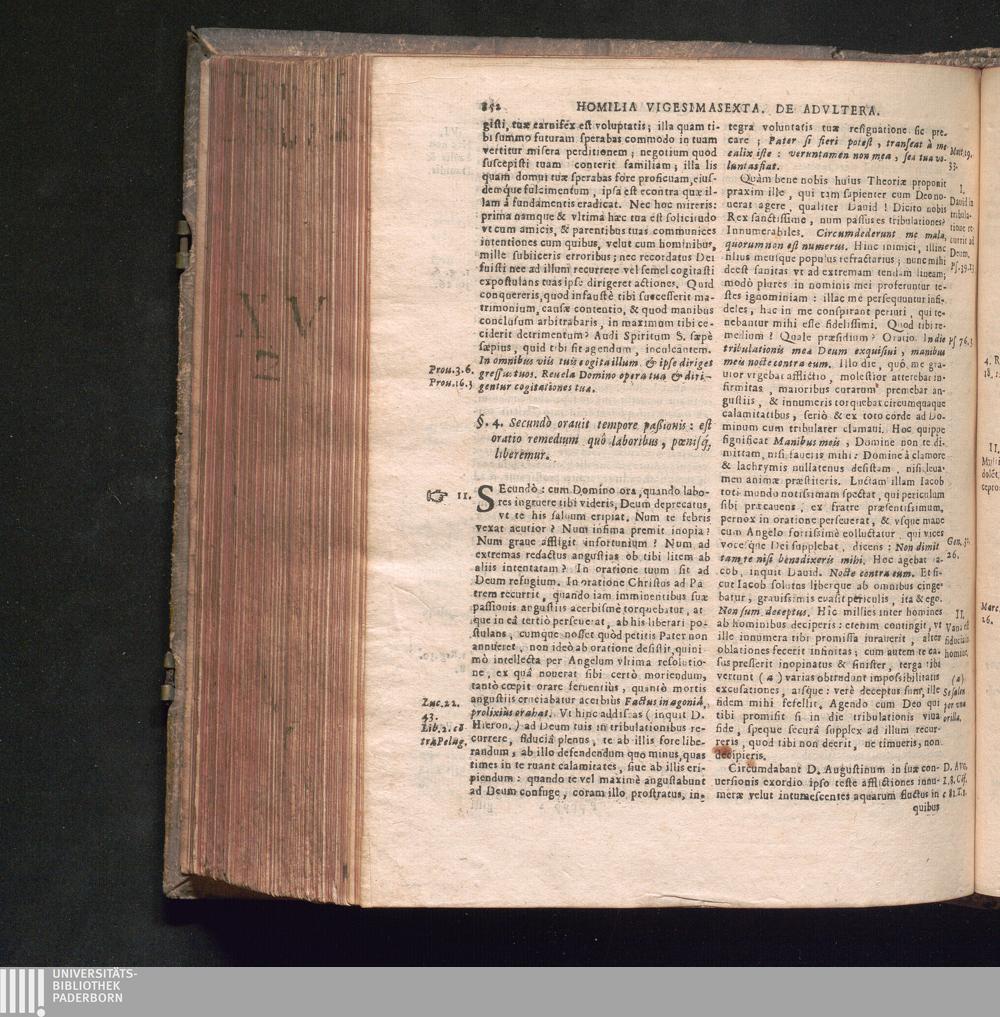 852 HOMILIA VIGESIMASEXTA. DE ADVLTERA.
gisti, tuæ carnifex est voluptatis; illa quam ti-
bi summo futuram sperabas commodo in tuam
vertitur misera perditionem; negotium quod
suscepisti tuam conterit familiam; illa lis
quam domui tuæ sperabas fore proficuam, eius-
demque fulcimentum, ipsa est econtra quæ il-
lam à fundamentis eradicat. Nec hoc mireris:
prima namque & vltima hæc tua est solicitudo
vt cum amicis, & parentibus tuas communices
intentiones cum quibus, velut cum hominibus,
mille subiiceris erroribus; nec recordatus Dei
fuisti nec ad illum recurrere vel semel cogitasti
expostulans tuas ipse dirigeret actiones. Quid
conquereris, quod infaustè tibi successerit ma-
trimonium, causæ contentio, & quod manibus
conclusum arbitrabaris, in maximum tibi ce-
ciderit detrimentum? Audi Spiritum S. sæpè
sæpius, quid tibi sit agendum, inculcantem.
In omnibus viis tuis cogita illum & ipse diriges
gressus tuos. Reuela Domino opera tua & diri-
gentur cogitationes tua.
Prou. 3.6.
Prou. 16.3
§. 4. Secundò orauit tempore passionis: est
oratio remedium quô laboribus, pœnisq́,
liberemur.
☞ 11. SEcundò: cum Domino ora, quando labo-
res ingruere tibi videris, Deum deprecatus,
vt te his saluum eripiat. Num te febris
vexat acutior? Num infima premit inopia?
Num graue affligit infortunium? Num ad
extremas redactus angustias ob tibi litem ab
aliis intentatam? In oratione tuum sit ad
Deum refugium. In oratione Christus ad Pa
trem recurrit, quando iam imminentibus suæ
passionis angustiis acerbissimè torquebatur, at
que in eâ tertiò perseuerat, ab his liberari po-
stulans, cumque nosset quòd petitis Pater non
annueret, non ideò ab oratione desistit, quini-
mò intellecta per Angelum vltima resolutio-
ne, ex quâ nouerat sibi certò moriendum,
tantò cœpit orare feruentius, quantò mortis
angustiis cruciabatur acerbius Factus in agoniâ,
prolixius orabat. Vt hinc addiscas (inquit D.
Hieron.) ad Deum tuis in tribulationibus re-
currere, fiduciâ plenus, te ab illis fore libe-
randum, ab illo defendendum quo minus, quas
times in te ruant calamitates, siue ab illis eri-
piendum: quando te vel maximè angustabunt
ad Deum confuge, coram illo prostratus, in-
Luc. 22.
43.
Lib. 2. cō
tra Pelag.
tegra voluntatis tuæ resignatione sic pre-
care; Pater si fieri potest, transeat à me
calix iste: veruntamen non mea, sed tua vo-
luntas fiat.
Matt.
Quàm bene nobis huius Theoriæ proponit
praxim ille, qui tam sapienter cum Deo no-
uerat agere, qualiter Dauid! Dicito nobis
Rex sanctissime, num passus es tribulationes?
Innumerabiles. Circumdederunt me mala,
quorum non est numerus. Hinc inimici, illinc
filius meusque populus refractarius; nunc mihi
deest sanitas vt ad extremam tendam lineam;
modò plures in nominis mei proferuntur te-
stes ignominiam: illac me persequuntur infi-
deles, hac in me conspirant periuri, qui te-
nebantur mihi esse fidelissimi. Quod tibi re-
medium? Quale præsidium? Oratio. In die
tribulationis mea Deum exquisiui, manibus
meis nocte contra eum. Illo die, quô me gra-
uior vrgebat afflictio, molestior atterebat in-
firmitas, maioribus curarum premebar an-
gustiis, & innumeris torquebar circumquaque
calamitatibus, seriò & ex toto corde ad Do-
minum cum tribularer clamaui. Hoc quippe
significat Manibus meis, Domine non te di-
mittam, nisi faueris mihi: Domine à clamore
& lachrymis nullatenus desistam, nisi leua-
men animæ præstiteris. Luctam illam Iacob
toti mundo notissimam spectat, qui periculum
sibi præcauens, ex fratre præsentissimum,
pernox in oratione perseuerat, & vsque mane
cum Angelo fortissimè colluctatur, qui vices
vocesque Dei supplebat, dicens: Non dimit
tam te nisi benedixeris mihi. Hoc agebat Ia-
cob, inquit Dauid. Nocte contra eum. Et si-
cut Iacob solutus liberque ab omnibus cinge-
batur, grauissimis euasit periculis, ita & ego.
Non sum deceptus. Hîc millies inter homines
ab hominibus deciperis: etenim contingit, vt
ille innumera tibi promissa iurauerit, alter
oblationes fecerit infinitas; cum autem te ca-
sus presserit inopinatus & sinister, terga tibi
vertunt (a) varias obtrudunt impossibilitatis
excusationes, aisque: verè deceptus sum, ille
fidem mihi fefellit. Agendo cum Deo qui
tibi promisit si in die tribulationis viua
fide, speque securâ supplex ad illum recur-
reris, quod tibi non deerit, ne timueris, non
decipieris.
Circumdabant D. Augustinum in suæ con-
uersionis exordio ipso teste afflictiones innu-
meræ velut intumescentes aquarum fluctus in
quibus
I.
Dauid in
tribula-
tione re-
currit ad
Deum.
Ps. 39.13
Ps 76.3
Gen. 32.
26.
II.
fiducia
(a)
D. Aug.
4. R
II.
Marc.
26.
XV
UNIVERSITÄTS-
BIBLIOTHEK
PADERBORN